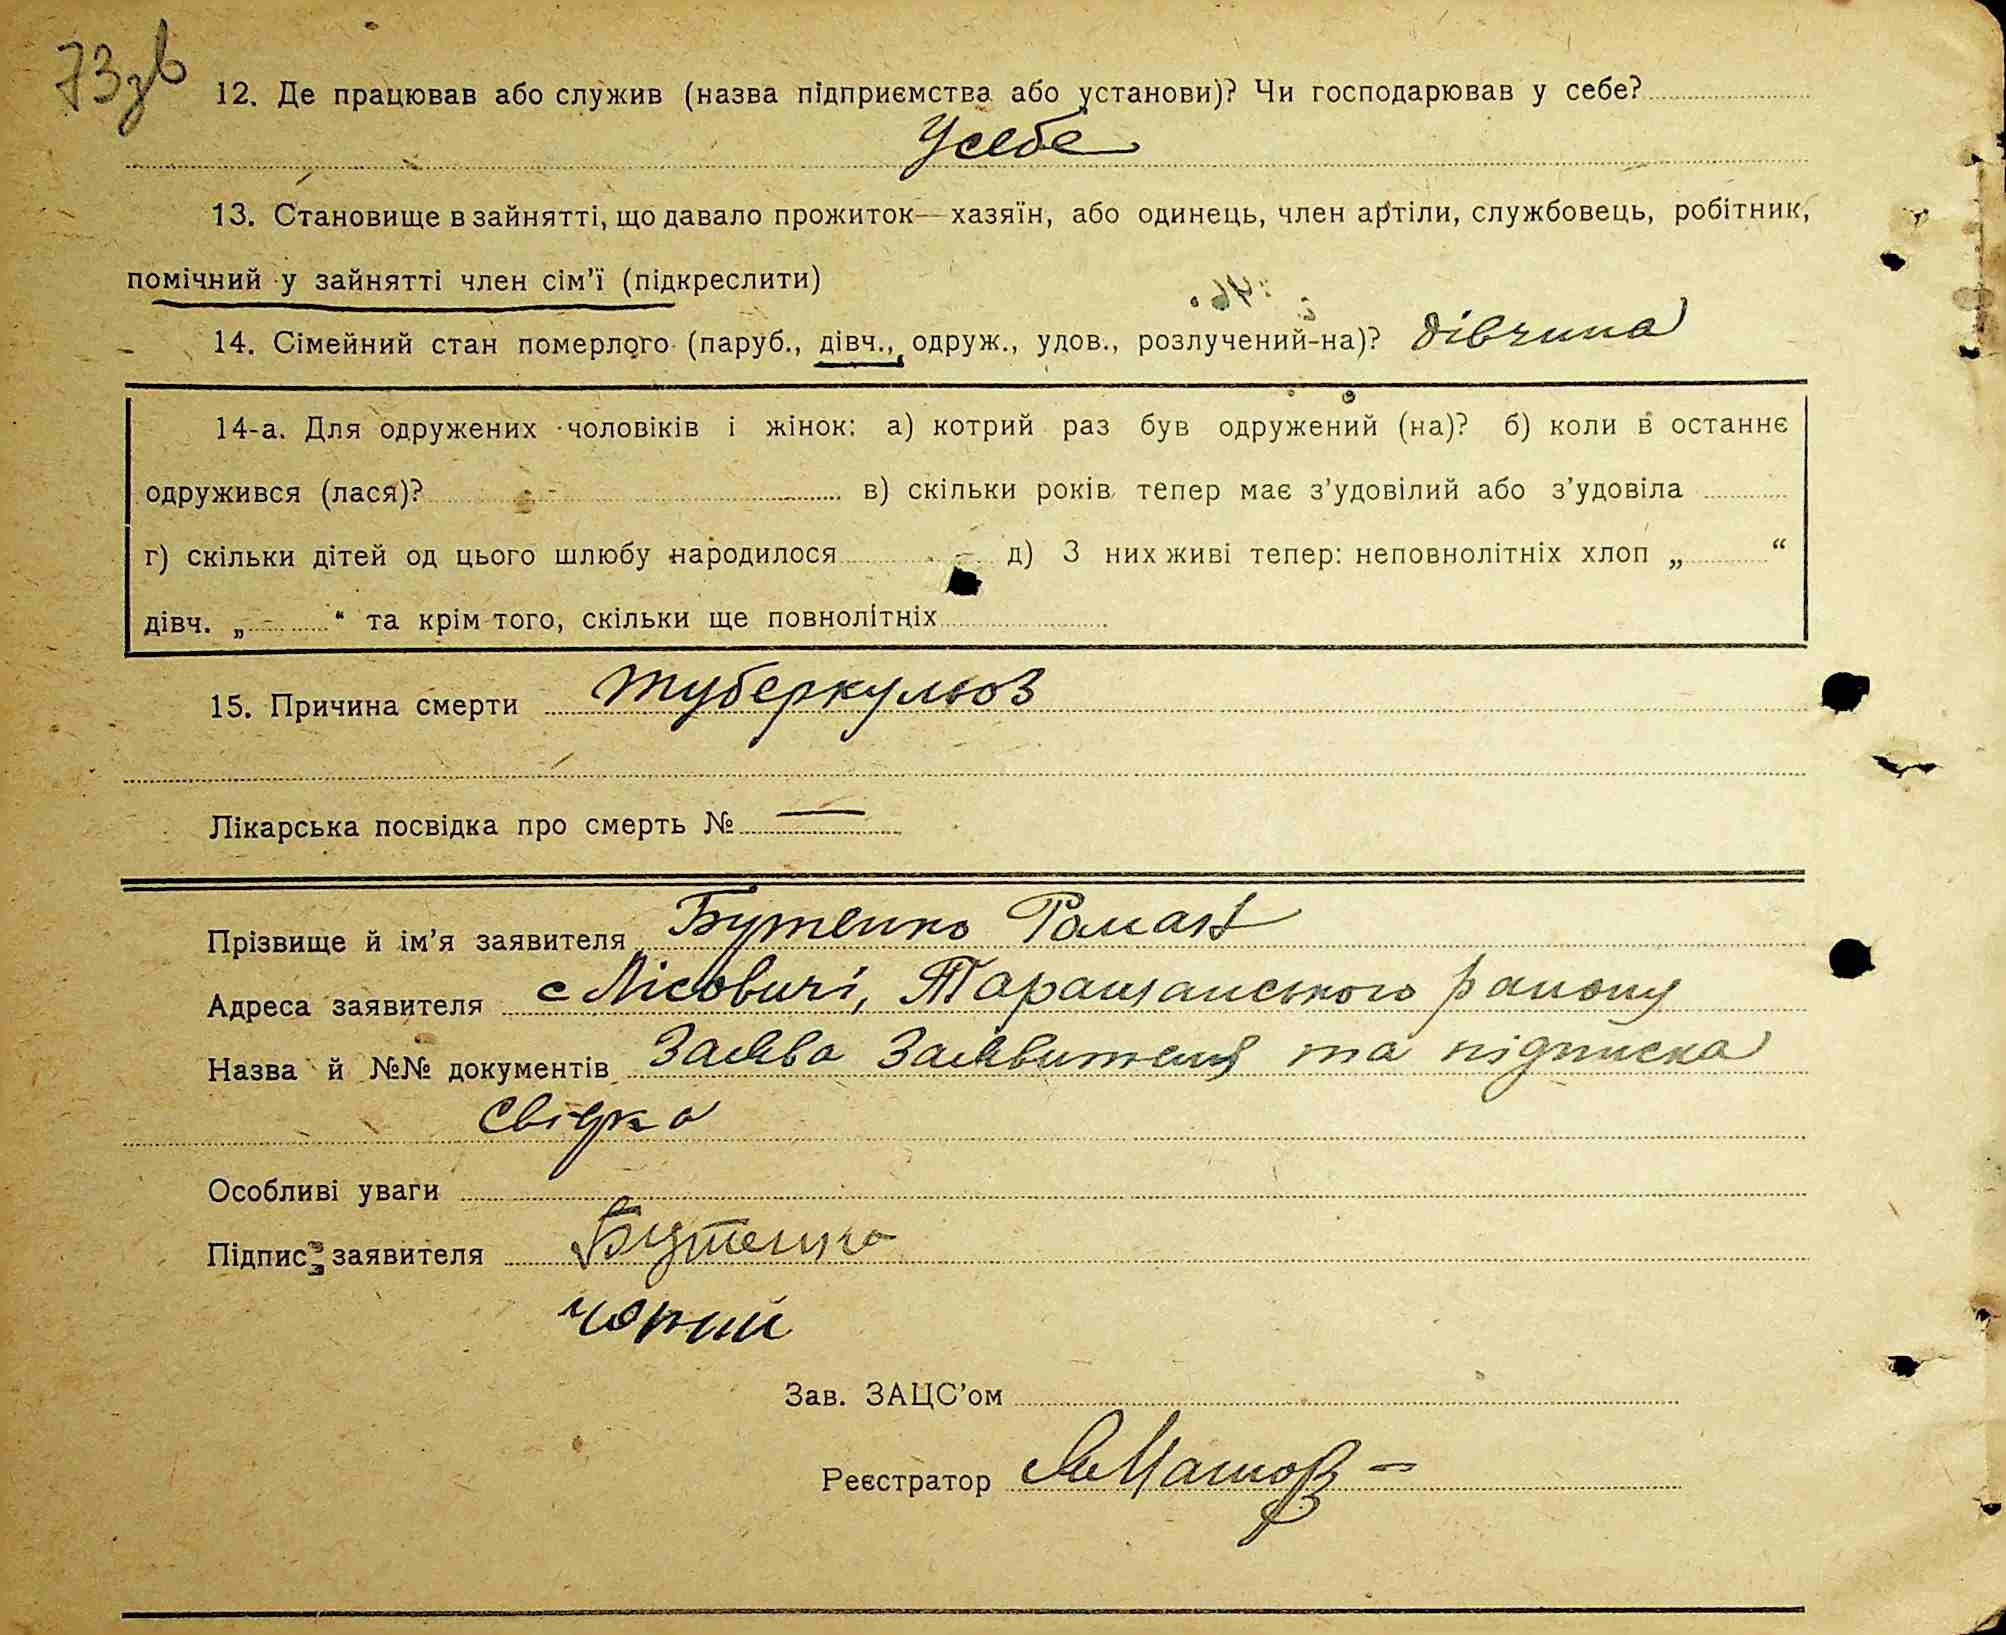 73зв
12. Де працював або служив (назва підприємства або установи)? Чи господарював у себе?
У себе
13. Становище в зайнятті, що давало прожиток—хазяїн, або одинець, член артіли, службовець, робітник,
помічний у зайнятті член сім’ї (підкреслити)
14. Сімейний стан померлого (паруб., дівч., одруж., удов., розлучений-на)? дівчина
14-а. Для одружених чоловіків і жінок: а) котрий раз був одружений (на)? б) коли в останнє
одружився (лася)? - в) скільки років тепер має з’удовілий або з’удовіла
г) скільки дітей од цього шлюбу народилося - д) З них живі тепер: неповнолітніх хлоп „ “
дівч. „ - “ та крім того, скільки ще повнолітніх
15. Причина смерти туберкульоз
Лікарська посвідка про смерть № —
Прізвище й ім’я заявителя Бутенко Роман
Адреса заявителя с Лісовичі, Таращанського району
Назва й №№ документів Заява Заявителя та підписка
свідка
Особливі уваги
Підпис заявителя Бутенко
Чорний
Зав. ЗАЦС’ом
Реєстратор